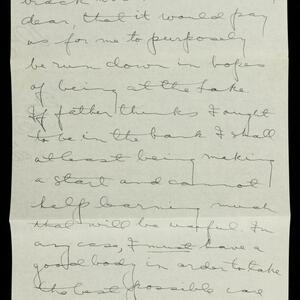 dear, that it would pay
us for me to purposely
be run down in hopes
of being at the Lake.
If father thinks I ought
to be in the bank I shall
at least being making
a start and cannot
help learning much
that will be useful. In
any case, I must have a
good body in order to take
the best possible care